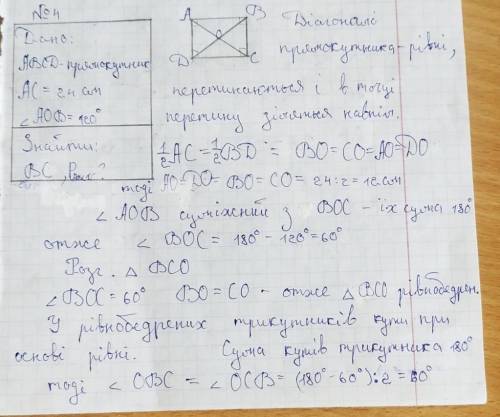 №4
Дано:
ABCD - прямокутник
AC = 24 см
∠AOB = 120°
Знайти:
BC, ?
A B
O
D C
Діагоналі
прямокутника - рівні,
перетинаються і в точці
перетину діляться навпіл.
½AC = ½BD = BO = CO = AO = DO
тоді AO = DO = BO = CO = 24 : 2 = 12 см
∠AOB суміжний з BOC - їх сума 180°
отже ∠BOC = 180° - 120° = 60°
Розг. △ BCO
∠BOC = 60° BO = CO - отже △ BCO рівнобедрен.
У рівнобедрених трикутників кути при
основі рівні. Сума кутів трикутника 180°
тоді ∠OBC = ∠OCB = (180° - 60°) : 2 = 60°